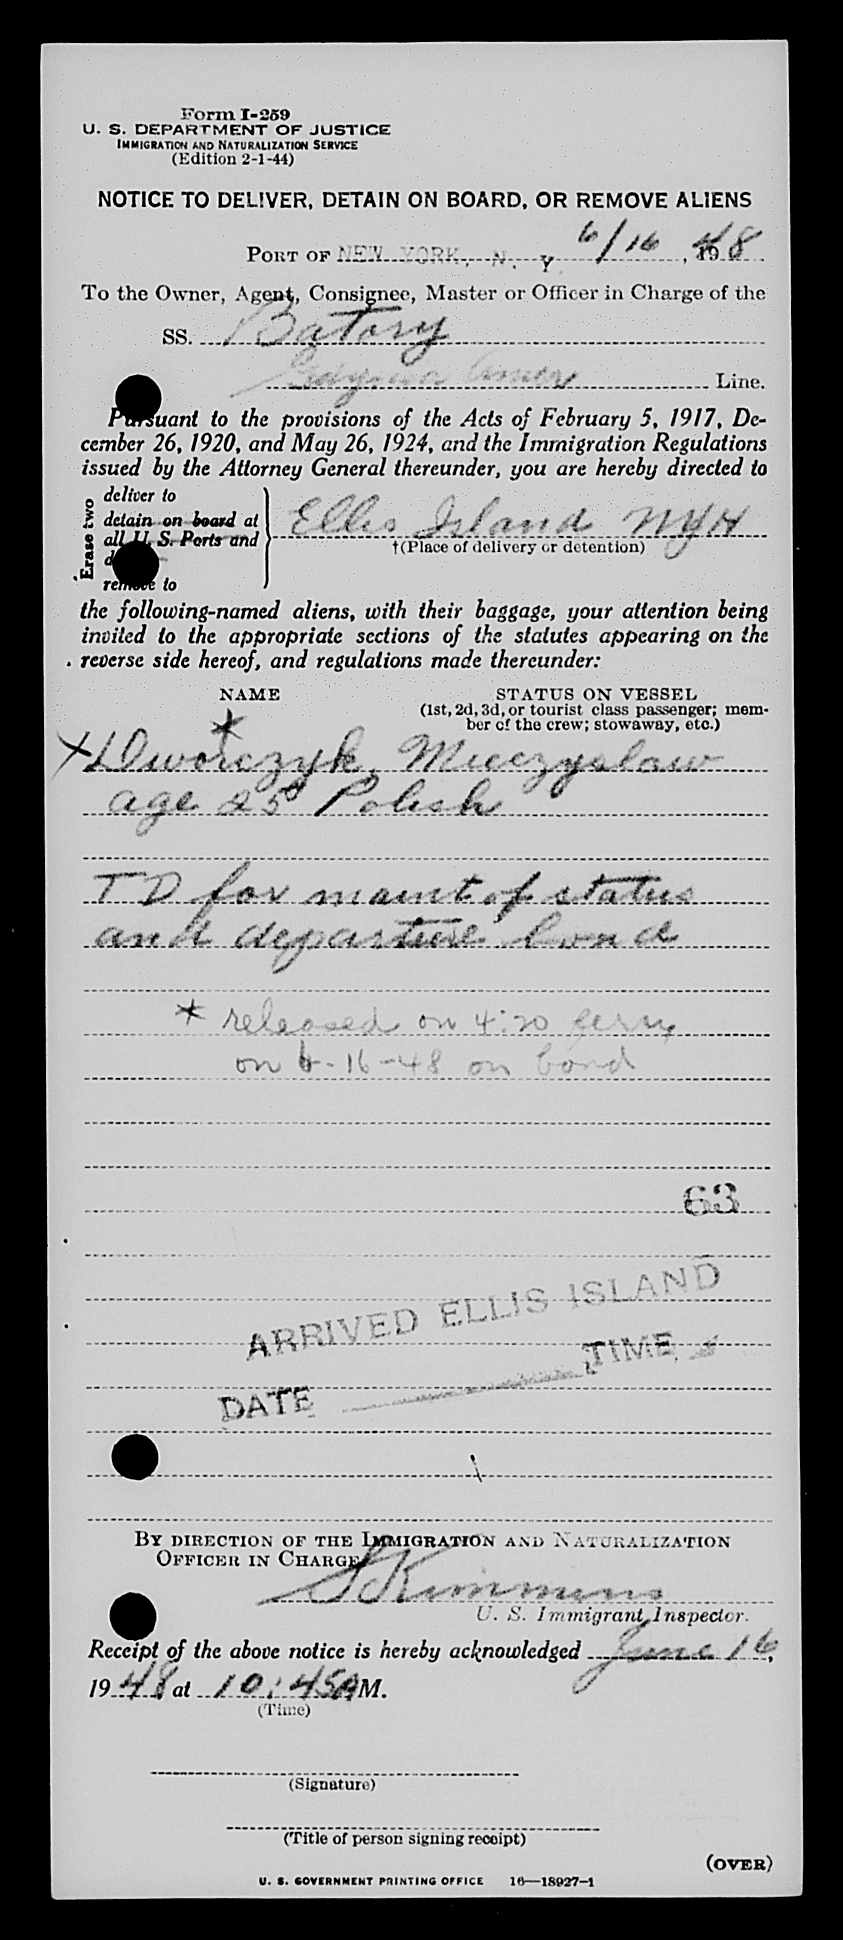 Form I-259
U. S. DEPARTMENT OF JUSTICE
IMMIGRATION AND NATURALIZATION SERVICE
(Edition 2-1-44)
NOTICE TO DELIVER, DETAIN ON BOARD, OR REMOVE ALIENS
PORT OF NEW YORK, N. Y. 6/16, 1948.
To the Owner, Agent, Consignee, Master or Officer in Charge of the
SS. Batory
Gdynia Amer Line.
Pursuant to the provisions of the Acts of February 5, 1917, De-
cember 26, 1920, and May 26, 1924, and the Immigration Regulations
issued by the Attorney General thereunder, you are hereby directed to
Erase two
deliver to
detain on board at
all U. S. Ports and
remove to
Ellis Island NYH
†(Place of delivery or detention)
the following-named aliens, with their baggage, your attention being
invited to the appropriate sections of the statutes appearing on the
reverse side hereof, and regulations made thereunder:
NAME STATUS ON VESSEL
(1st, 2d, 3d, or tourist class passenger; mem-
ber of the crew; stowaway, etc.)
*
x Dworczyk, Mieczyslaw
age 25 Polish
TD for maint of status
and departure bond
* released on 4:20 ferry
on 6-16-48 on bond
63
ARRIVED ELLIS ISLAND
DATE TIME
BY DIRECTION OF THE IMMIGRATION AND NATURALIZATION
OFFICER IN CHARGE
SKimmins
U. S. Immigrant Inspector.
Receipt of the above notice is hereby acknowledged June 16,
1948 at 10:45AM.
(Time)
(Signature)
(Title of person signing receipt)
(OVER)
U. S. GOVERNMENT PRINTING OFFICE 16—18927-1